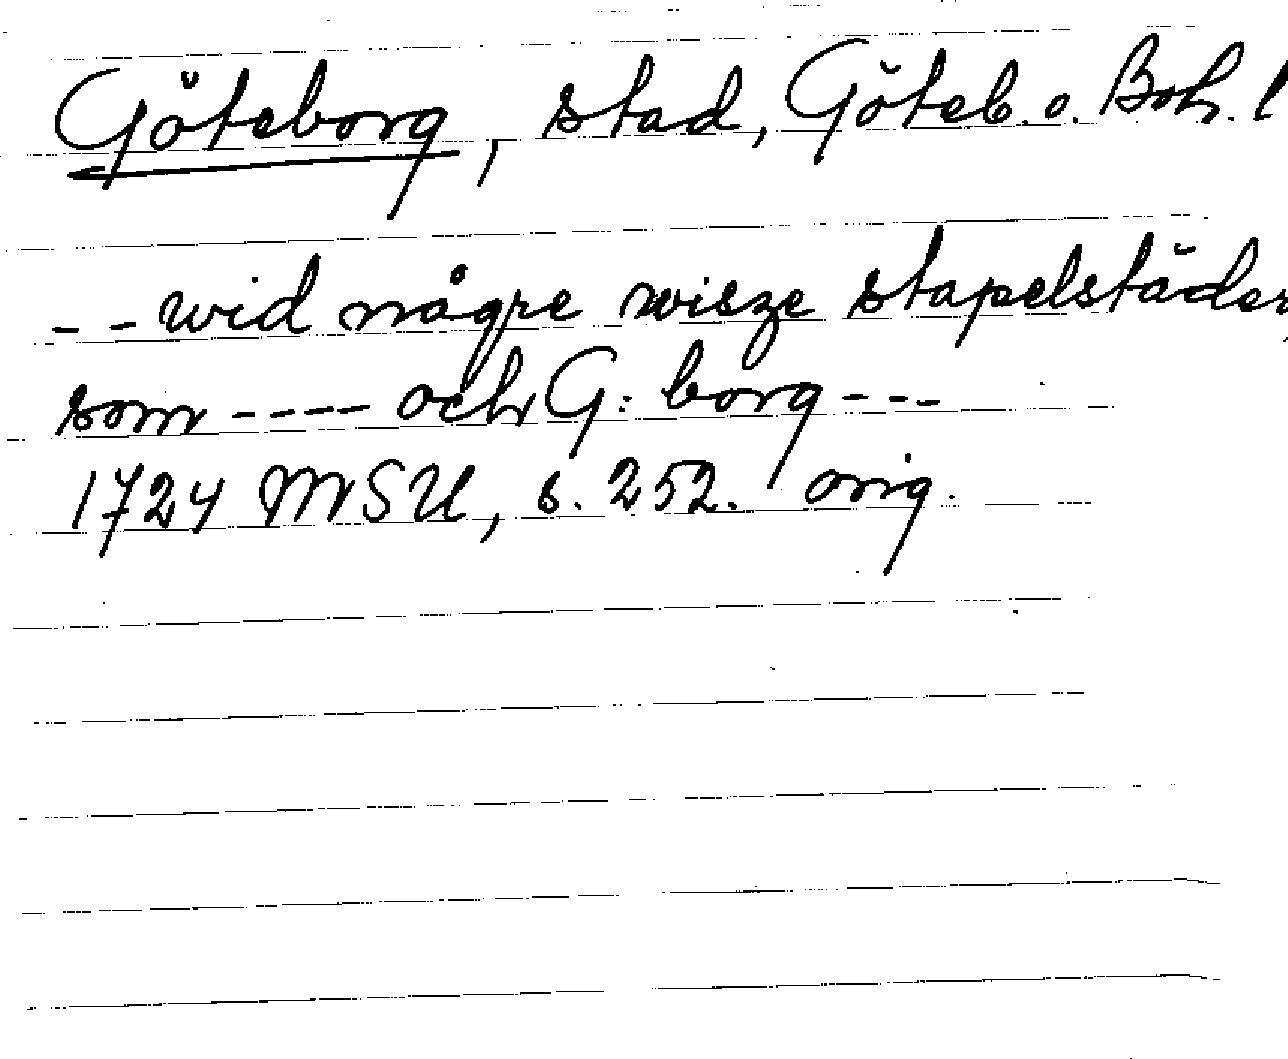 Göteborg, stad, Göteb. o. Boh. l
- - wid någre wisze stapelstäder,
som - - - - och G: borg - - -
1724 MSU, s. 252. orig.